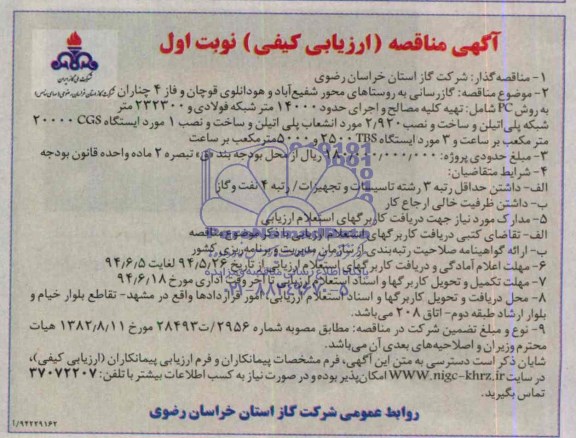 آگهی مناقصه (ارزیابی کیفی) نوبت اول
شرکت ملی گاز ایران
۱- مناقصه‌گذار: شرکت گاز استان خراسان رضوی
۲- موضوع مناقصه: گازرسانی به روستاهای محور شفیع‌آباد و هودانلوی قوچان و فاز ۴ چناران
به روش PC شامل: تهیه کلیه مصالح و اجرای حدود ۱۴۰۰۰ متر شبکه فولادی و ۲۳۲۳۰۰ متر
شبکه پلی‌اتیلن و ساخت و نصب ۲/۹۲۰ مورد انشعاب پلی اتیلن و ساخت و نصب ۱ مورد ایستگاه CGS ۲۰۰۰۰
متر مکعب بر ساعت و ۳ مورد ایستگاه TBS ۲۵۰۰ و ۵۰۰۰ متر مکعب بر ساعت
۳- مبلغ حدودی پروژه: ریال از محل بودجه بند تبصره ۲ ماده واحده قانون بودجه
۴- شرایط متقاضیان:
الف- داشتن حداقل رتبه ۳ رشته تاسیسات و تجهیزات/ رتبه ۴ نفت و گاز
ب- داشتن ظرفیت خالی ارجاع کار
۵- مدارک مورد نیاز جهت دریافت کاربرگهای استعلام ارزیابی
الف- تقاضای کتبی دریافت کاربرگهای استعلام ارزیابی با ذکر موضوع مناقصه
ب- ارائه گواهینامه صلاحیت رتبه‌بندی از سازمان مدیریت و برنامه‌ریزی کشور
۶- مهلت اعلام آمادگی و دریافت کاربرگهای استعلام ارزیابی از تاریخ ۹۴/۵/۲۶ لغایت ۹۴/۶/۵
۷- مهلت تکمیل و تحویل کاربرگها و اسناد استعلام ارزیابی تا آخر وقت اداری مورخ ۹۴/۶/۱۸
۸- محل دریافت و تحویل کاربرگها و اسناد استعلام ارزیابی، امور قراردادها واقع در مشهد- تقاطع بلوار خیام و
بلوار ارشاد طبقه دوم- اتاق ۲۰۸ می‌باشد.
۹- نوع و مبلغ تضمین شرکت در مناقصه: مطابق مصوبه شماره ۲۹۵۶/ت۲۸۴۹۳ مورخ ۱۳۸۲/۸/۱۱ هیات
محترم وزیران و اصلاحیه‌های بعدی آن می‌باشد.
شایان ذکر است دسترسی به متن این آگهی، فرم مشخصات پیمانکاران و فرم ارزیابی پیمانکاران (ارزیابی کیفی)،
در سایت WWW.nigc-khrz.ir امکان‌پذیر بوده و در صورت نیاز به کسب اطلاعات بیشتر با تلفن: ۳۷۰۷۲۲۰۷
تماس بگیرید.
روابط عمومی شرکت گاز استان خراسان رضوی